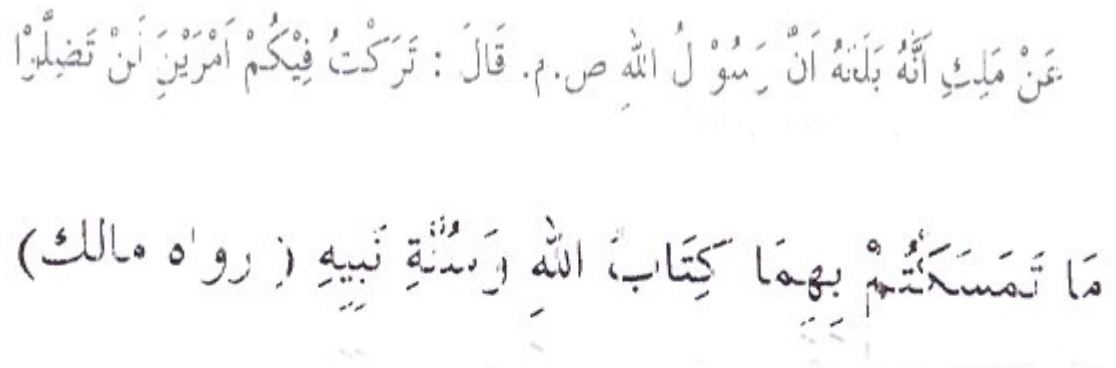 عَنْ مَلِكِ أَنَّهُ بَلَغَهُ اَنَّ رَسُوْ لُ اللهِ ص.م. قَالَ : تَرَكْتُ فِيْكُمْ اَمْرَيْنِ لَنْ تَضِلُّوْا
مَا تَمَسَكْتُمْ بِهِمَا كِتَابَ اللهِ وَسُنَّةِ نَبِيِهِ ( رواه مالك)